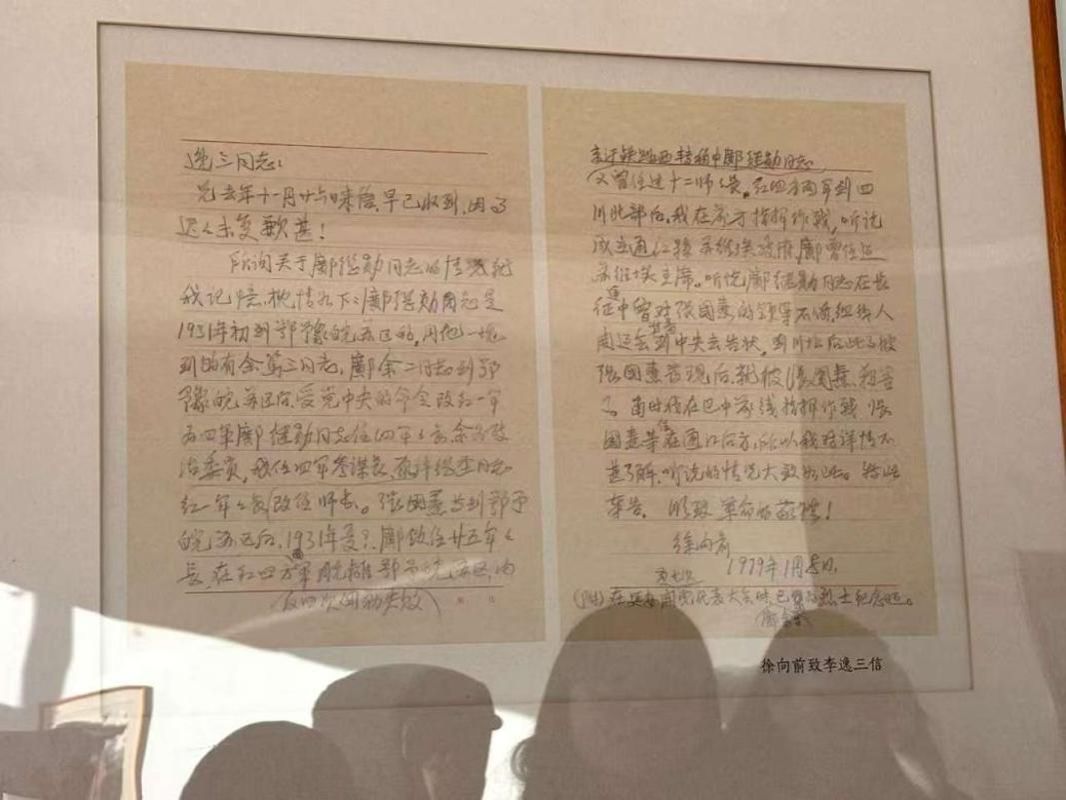 逸三同志:
您去年十一月廿六日来信,早已收到,因了
迟迟未复歉甚!
所询关于鄺继勋同志的情况就
我记忆,概情如下:鄺继勋同志是
1931年初到鄂豫皖苏区的,同他一块
到的有余篤三同志,鄺余二同志到鄂
豫皖苏区后,受党中央的命令改红一军
为四军鄺继勋同志任四军军长余为政
治委员,我任四军参谋长,原许继慎同志
红一军军长改任师长。张国焘与到鄂予
皖苏区后,1931年夏,鄺改任廿五军军
长,在红四方面军脱离鄂予皖苏区,向
(反四次围剿失败)
京汉铁路西转移中鄺继勋同志
又曾任过十二师师长,红四方面军到四
川北部后,我在前方指挥作战,听说
成立通江县苏维埃政府,鄺曾任过
苏维埃主席。听说鄺继勋同志在长
征中曾对张国焘的领导不满,组织人
同还会到中央去告状,到川北后此事被
张国焘发现后,就被张国焘杀害
了。当时我在巴中前线指挥作战,张
国焘等住在通江后方,所以我对详情不
甚了解,听说的情况大致如此。特此
奉告。顺致革命的敬礼!
徐向前
1979年1月5日
(附)在延安开党代表大会时已列为烈士纪念过。
徐向前致李逸三信